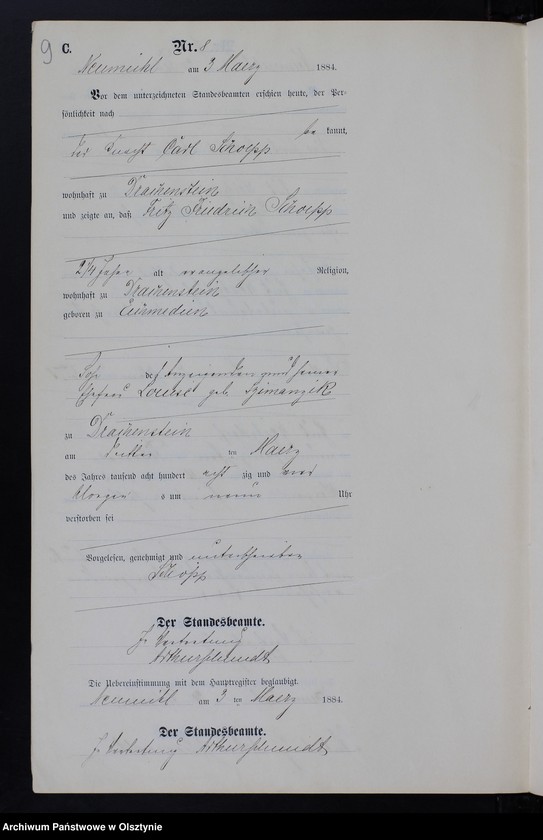 9
C.
Nr. 8
Neumühl am 3 Maerz 1884.
Vor dem unterzeichneten Standesbeamten erschien heute, der Per-
sönlichkeit nach
be kannt,
der Knecht Carl Schoepp
wohnhaft zu Drachenstein
und zeigte an, daß Fritz Friedrich Schoepp
2 1/4 Jahr alt evangelischer Religion,
wohnhaft zu Drachenstein
geboren zu
Sohn des Anzeigenden und seiner
Ehefrau Louise geb. Szimanzik
zu Drachenstein
am dritten ten Maerz
des Jahres tausend acht hundert acht zig und vier
Morgens um neun Uhr
verstorben sei
Vorgelesen, genehmigt und unterschrieben
Schöpp
Der Standesbeamte.
In Vertretung
Die Uebereinstimmung mit dem Hauptregister beglaubigt.
Neumühl am 3 ten Maerz 1884.
Der Standesbeamte.
In Vertretung
Archiwum Państwowe w Olsztynie